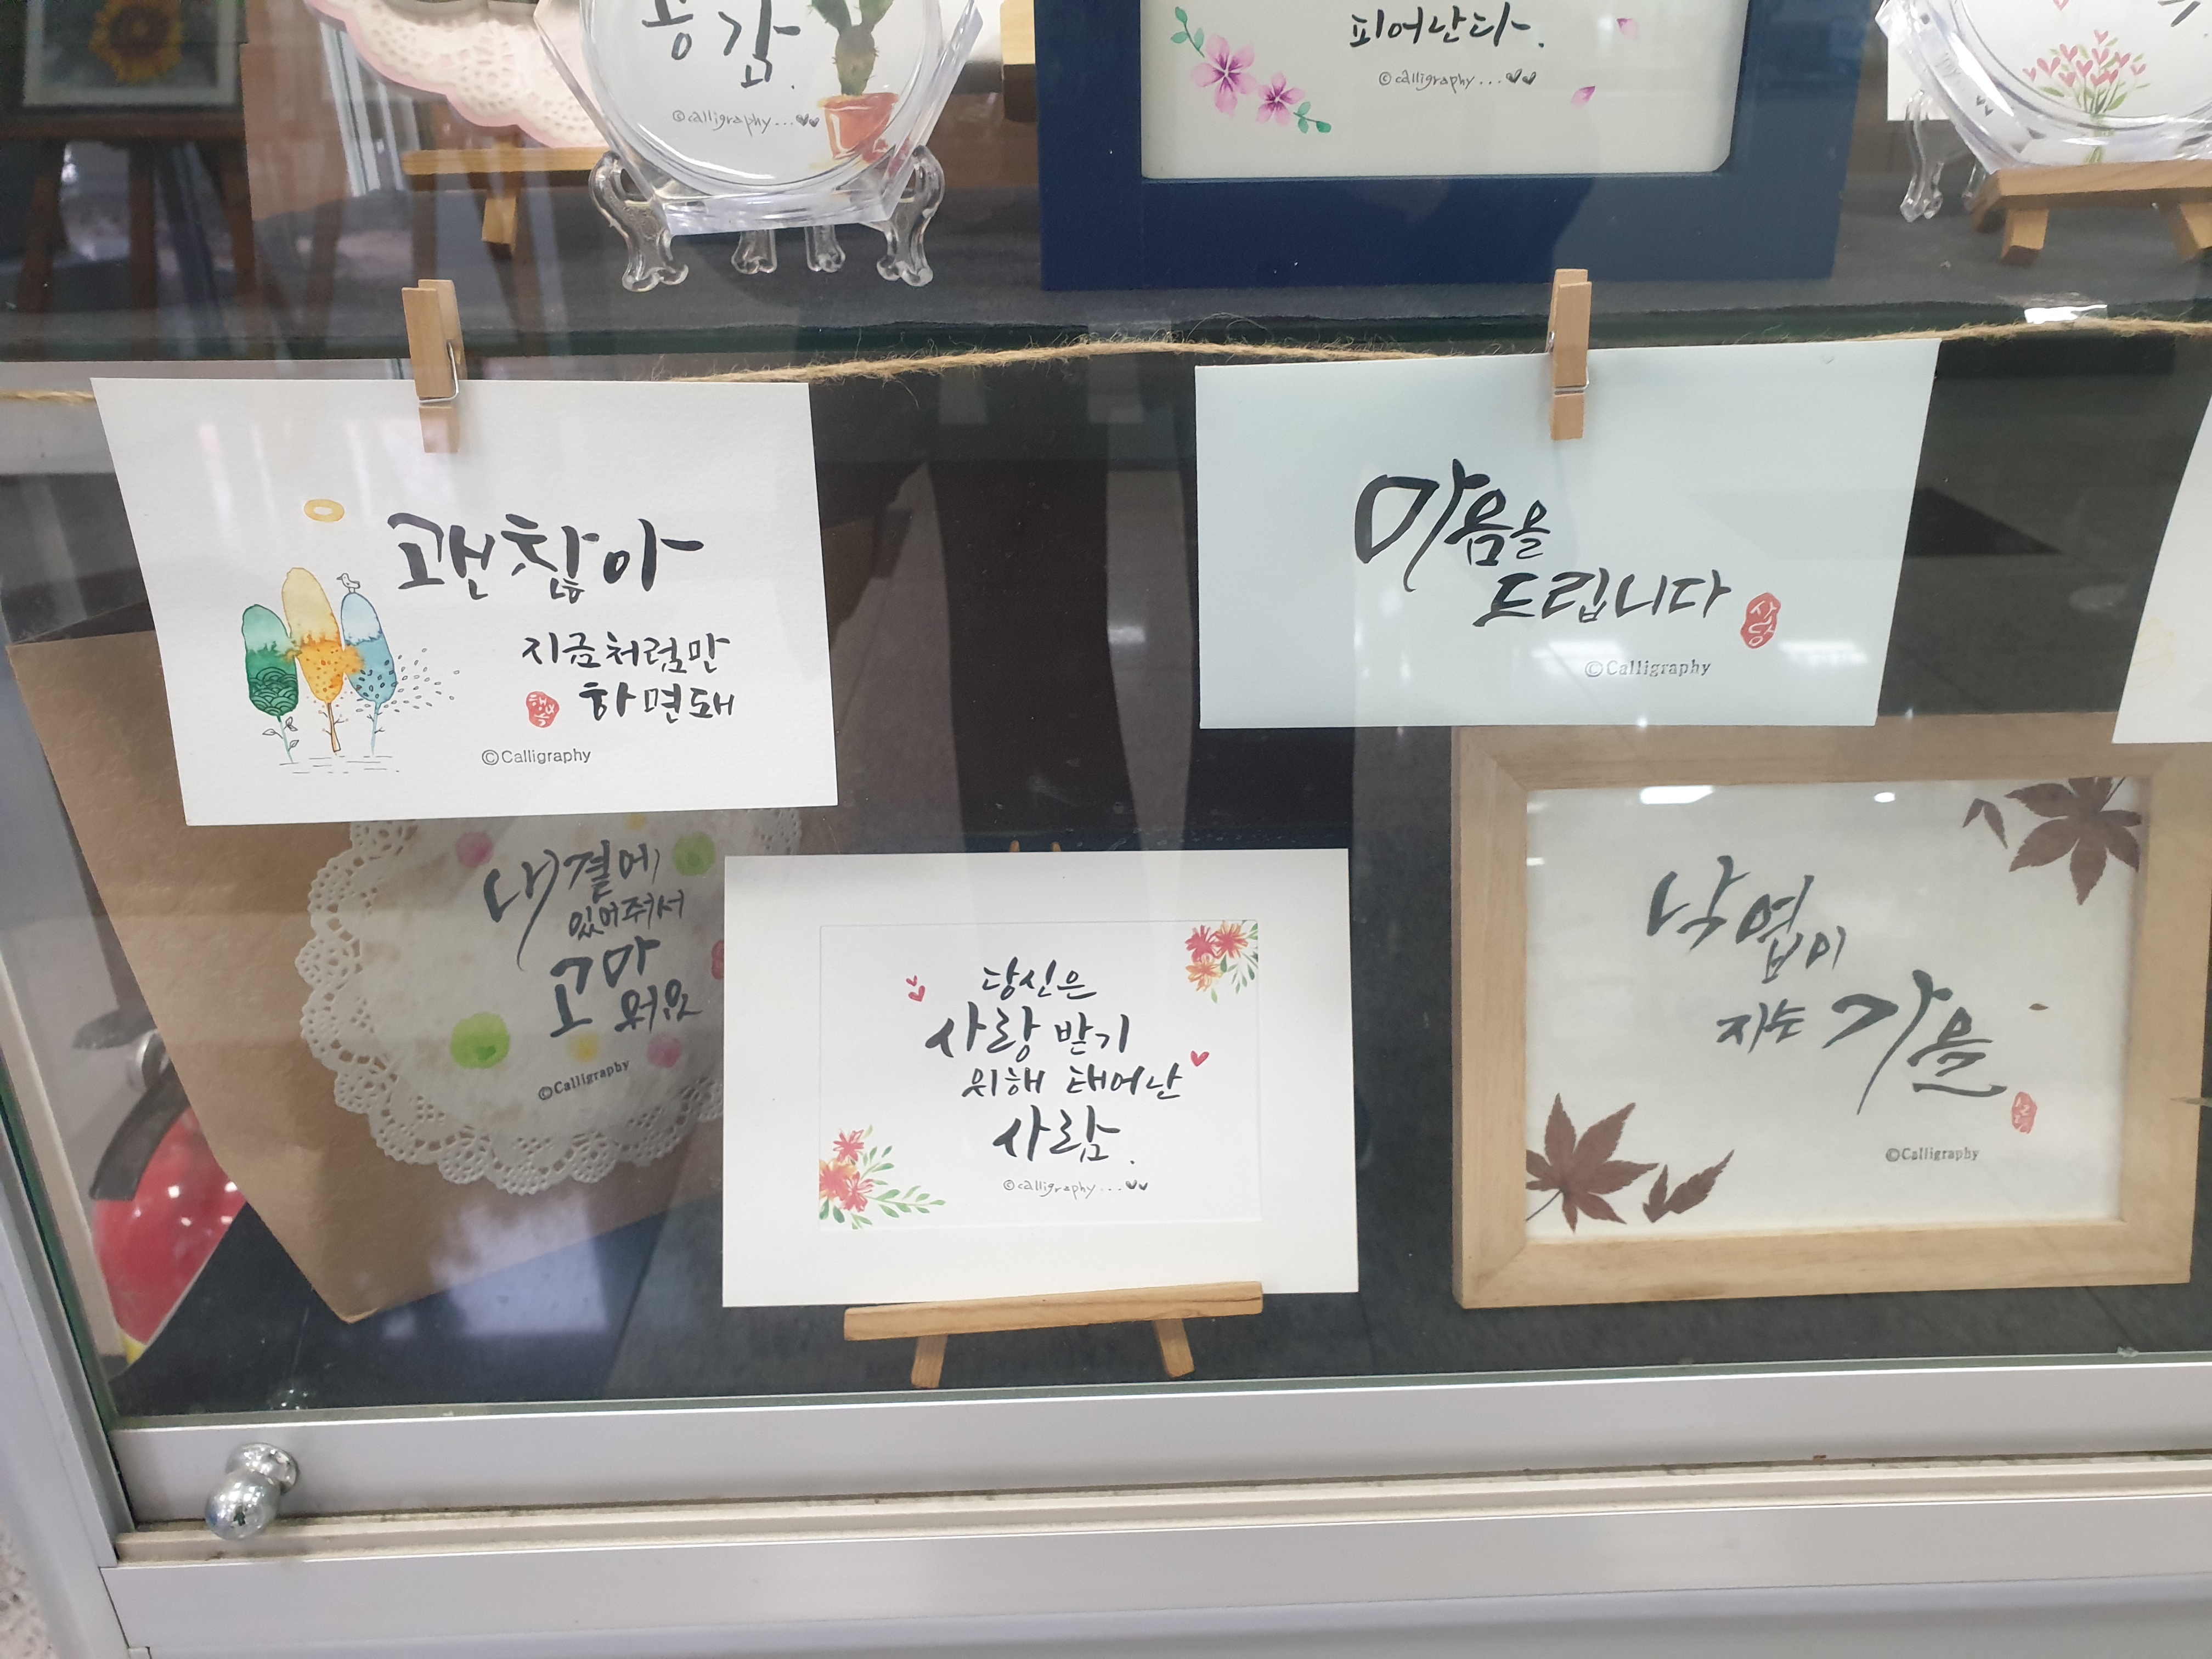 공감.
©calligraphy...
피어난다.
©calligraphy...
괜찮아
지금처럼만
행복
하면돼
©Calligraphy
마음을
드립니다
사랑
©Calligraphy
내곁에
있어줘서
고마
워요
©Calligraphy
당신은
사랑 받기
위해 태어난
사람.
©calligraphy...
낙엽이
지는 가을
©Calligraphy